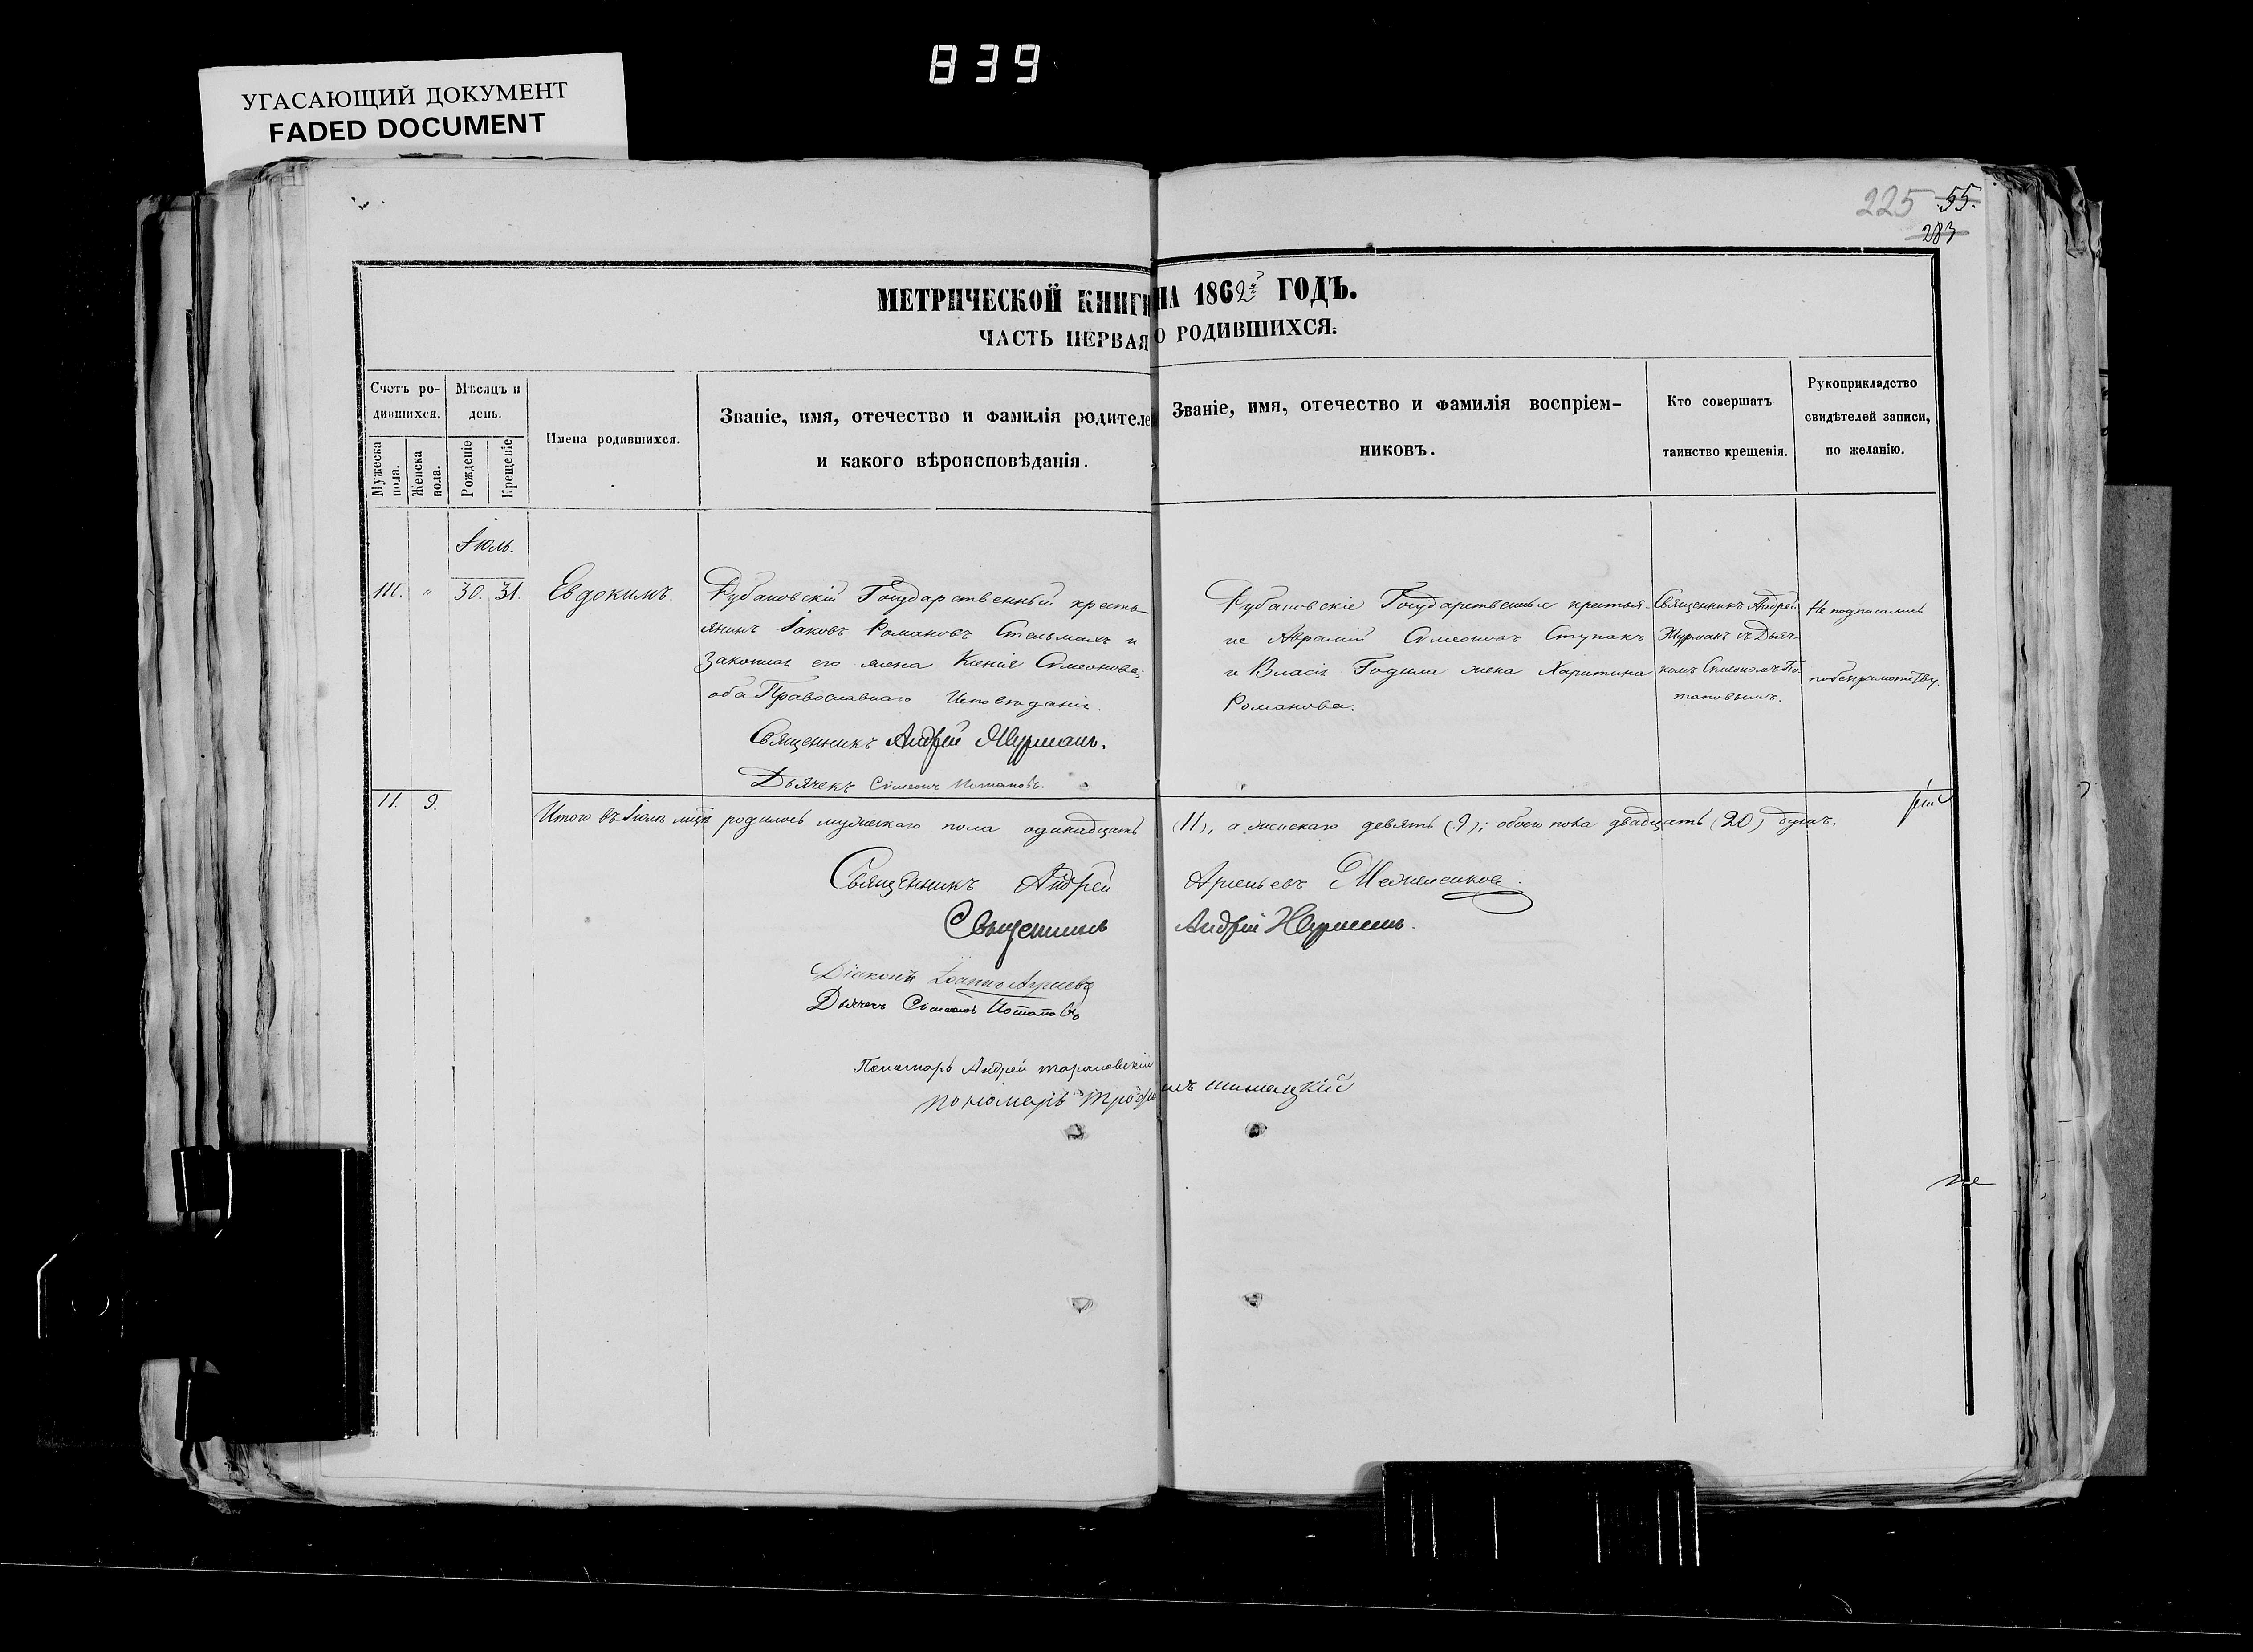 839
УГАСАЮЩИЙ ДОКУМЕНТ
FADED DOCUMENT
225 55.
283
МЕТРИЧЕСКОЙ КНИГИ НА 1862й ГОДЪ.
ЧАСТЬ ПЕРВАЯ О РОДИВШИХСЯ.
Счетъ ро-
дившихся.
Мужеска пола.
Женска пола.
Мѣсяцъ и
день.
Рожденіе
Крещеніе
Имена родившихся.
Званіе, имя, отечество и фамилія родителе
и какого вѣроисповѣданія.
Званіе, имя, отечество и фамилія воспріем-
никовъ.
Кто совершатъ
таинство крещенія.
Рукоприкладство
свидѣтелей записи,
по желанію.
Іюль.
111. " 30. 31. Евдокимъ.
Рубановскій Государственный кресть-
янинъ Іаковъ Романовъ Стельмахъ и
законная его жена Ксенія Симеонова;
оба Православнаго Исповѣданія.
Священникъ Андрей
Дьячекъ Симеонъ Потаповъ.
Рубановскіе Государственные крестья-
не Авраамій Симеоновъ Ступакъ
и Власія Годила жена Харитина
Романова.
Священникъ Андрей
съ Дьяч-
комъ Симеономъ По-
таповымъ.
Не подписались
по безграмотству.
11. 9.
Итого въ Іюлѣ мцѣ родилось мужескаго пола одинадцать (11), а женскаго девять (9); обоего пола двадцать (20) душъ.
Священникъ Андрей Арсеньевъ
Священникъ Андрей
Діаконъ
Дьячекъ Симеонъ Потаповъ
Пономарь Андрей Тарановскій
Пономарь Трофимъ